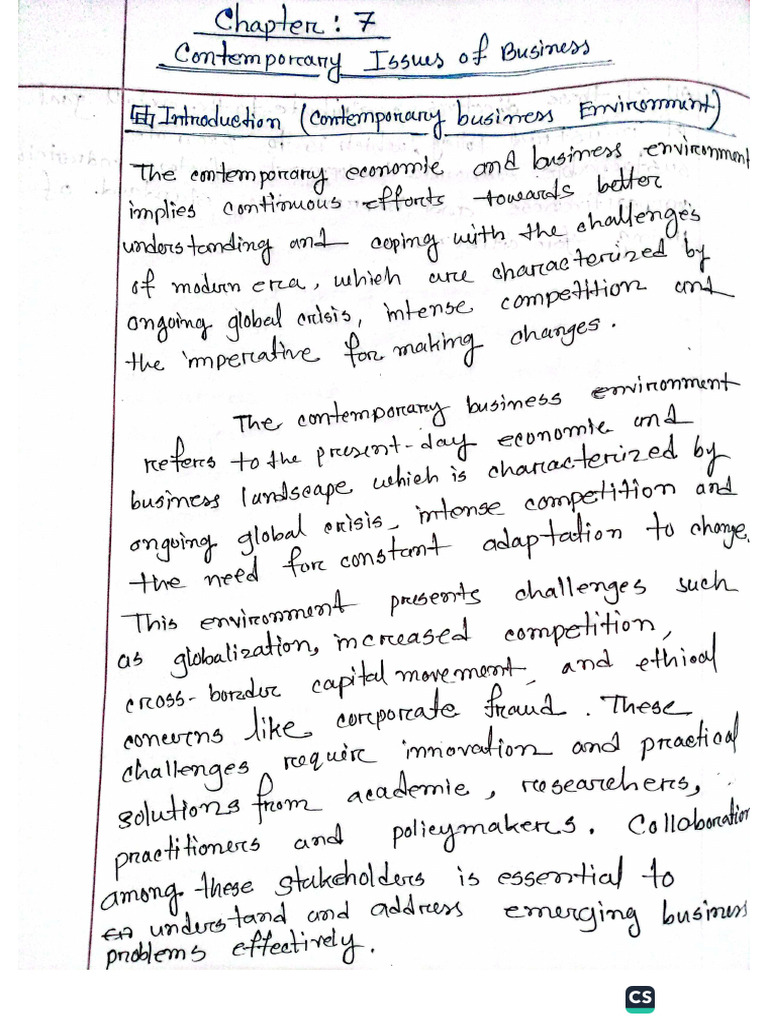 Chapter : 7
Contemporary Issues of Business
Introduction (Contemporary business Environment)
The contemporary economic and business environment
implies continuous efforts towards better
understanding and coping with the challenges
of modern era, which are characterized by
ongoing global crisis, intense competition and
the imperative for making changes.
The contemporary business environment
refers to the present-day economic and
business landscape which is characterized by
ongoing global crisis, intense competition and
the need for constant adaptation to change.
This environment presents challenges such
as globalization, increased competition,
cross-border capital movement, and ethical
concerns like corporate fraud. These
challenges require innovation and practical
solutions from academic, researchers,
practitioners and policymakers. Collaboration
among these stakeholders is essential to
understand and address emerging business
problems effectively.
CS